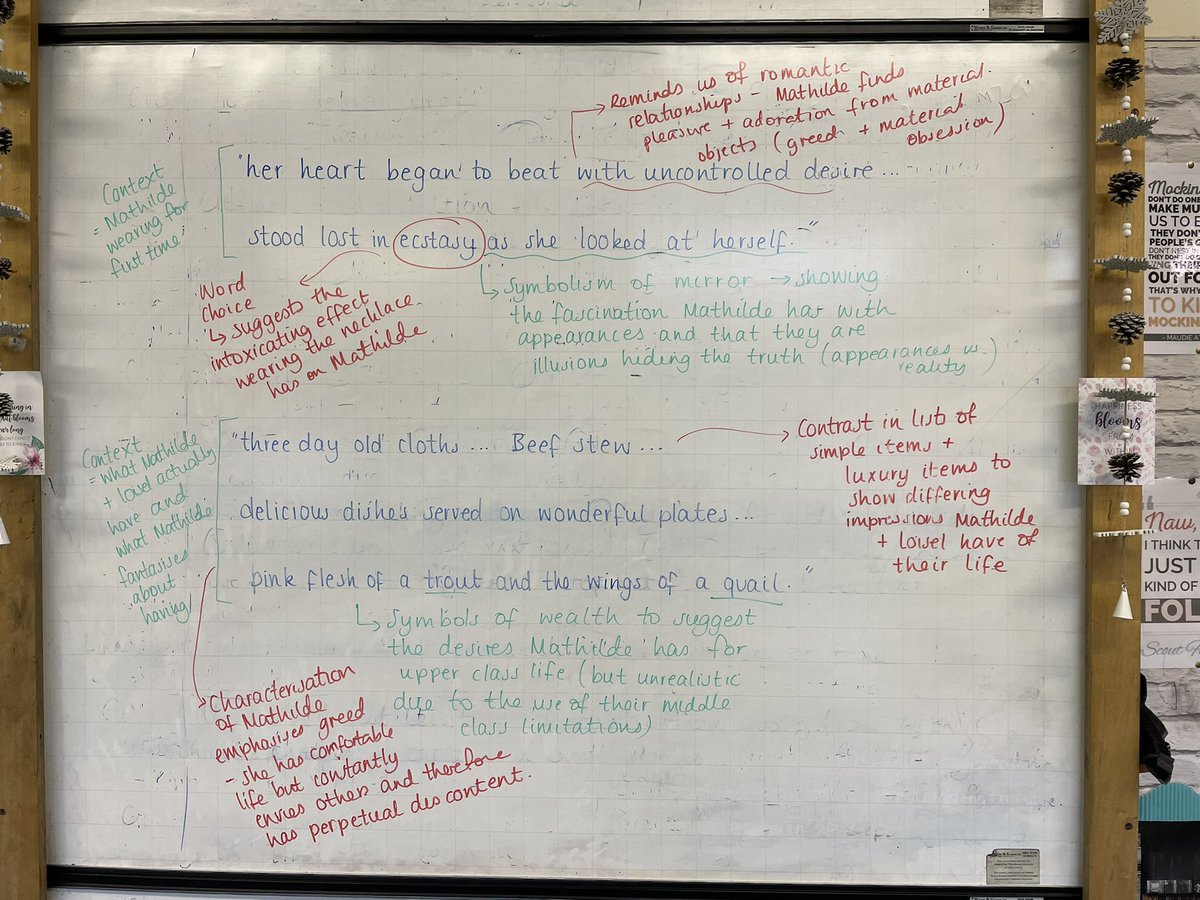 Reminds us of romantic
relationships - Mathilde finds
pleasure + adoration from material
objects (greed + material
obsession)
Context
= Mathilde
wearing for
first time
"her heart began to beat with uncontrolled desire...
stood lost in ecstasy as she looked at herself."
Word
choice
↳ suggests the
intoxicating effect
wearing the necklace
has on Mathilde.
↳ Symbolism of mirror → showing
the fascination Mathilde has with
appearances and that they are
illusions hiding the truth (appearances vs.
reality)
Context
= what Mathilde
+ Loisel actually
have and
what Mathilde
fantasises
about
having
"three day old cloths... Beef stew...
delicious dishes served on wonderful plates...
pink flesh of a trout and the wings of a quail."
Contrast in lists of
simple items +
luxury items to
show differing
impressions Mathilde
+ Loisel have of
their life
↳ Symbols of wealth to suggest
the desires Mathilde has for
upper class life (but unrealistic
due to the use of their middle
class limitations)
Characterisation
of Mathilde
emphasises greed
- she has comfortable
life but constantly
envies others and therefore
has perpetual discontent.
DON'T DO ONE
MAKE MU
US TO E
THEY DON'
PEOPLE'S G
OUT FO
THAT'S WHY
TO KI
MOCKIN
- MAUDIE AT
HAPPINESS
blooms
FR
WITH
Naw,
I THINK T
JUST
KIND OF
FOL
Scout F